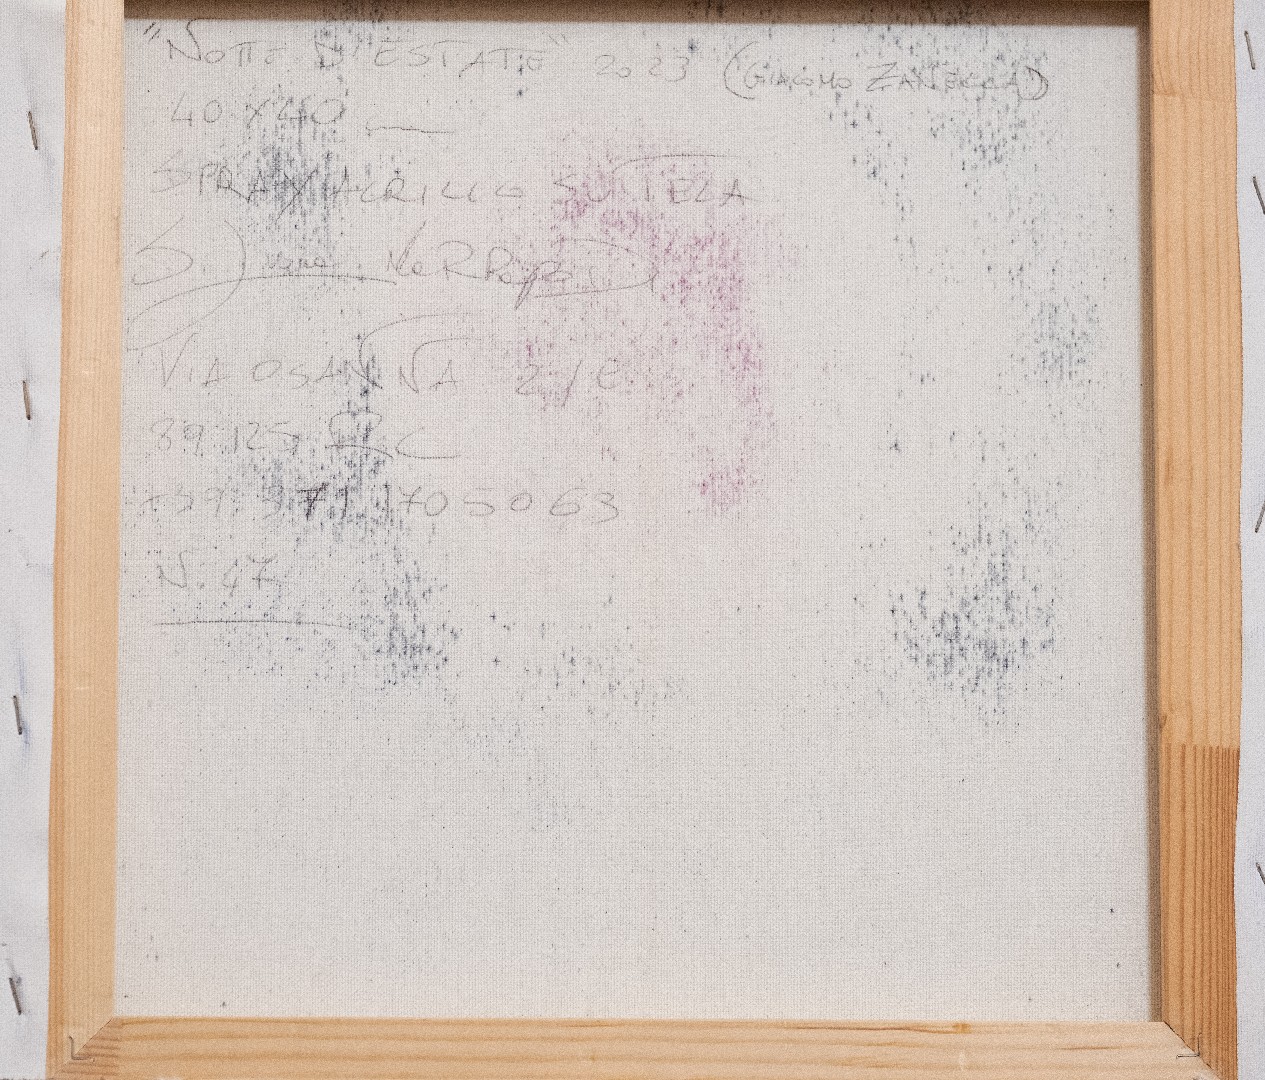 "NOTTE D'ESTATE" 2023 (GIACOMO ZANELLA)
40 X 40
SPRAY ACRILICO SU TELA
VIA OSANNA 2/C
89125 RC
+39 371 1705063
N. 47